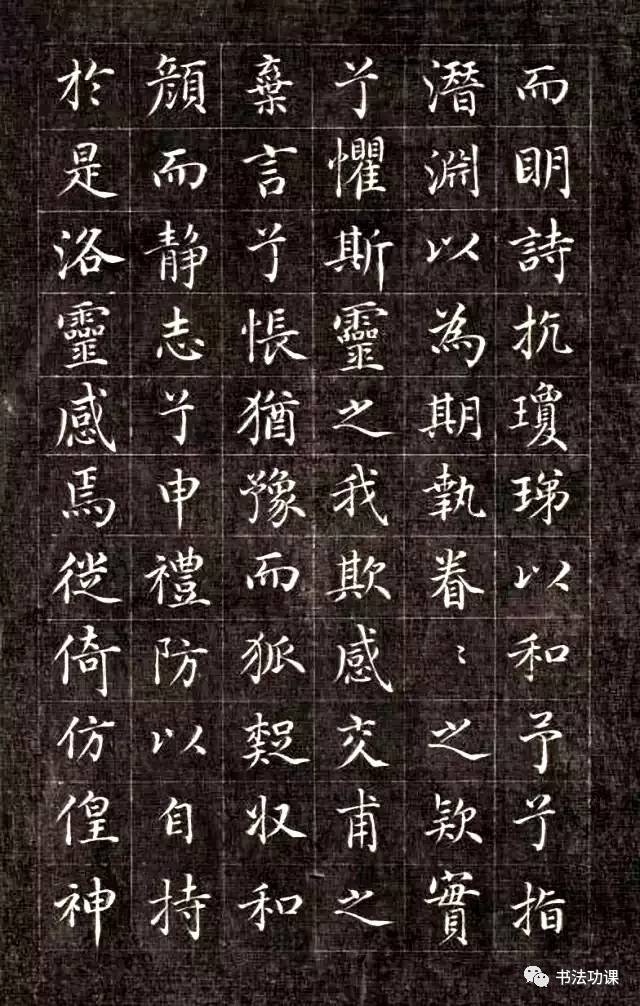 而明詩抗瓊珶以和予兮指
潛淵以為期執眷〻之款實
兮懼斯靈之我欺感交甫之
棄言兮悵猶豫而狐疑収和
顏而静志兮申禮防以自持
於是洛靈感焉徙倚仿偟神
书法功课